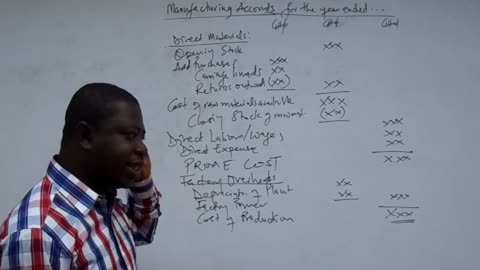 Manufacturing Accounts for the year ended...
GH¢ GH¢ GH¢
Direct Materials:
Opening Stock xxx
Add Purchases xxx
Carriage Inwards xx
Returns outward (xx) xx
Cost of raw materials available xxx
Closing Stock of raw mat (xx)
xxx
Direct Labour/Wages xx
Direct Expense xx
PRIME COST xxx
Factory Overheads
Depreciation of Plant xx
Factory Power xx xxx
Cost of Production xxx